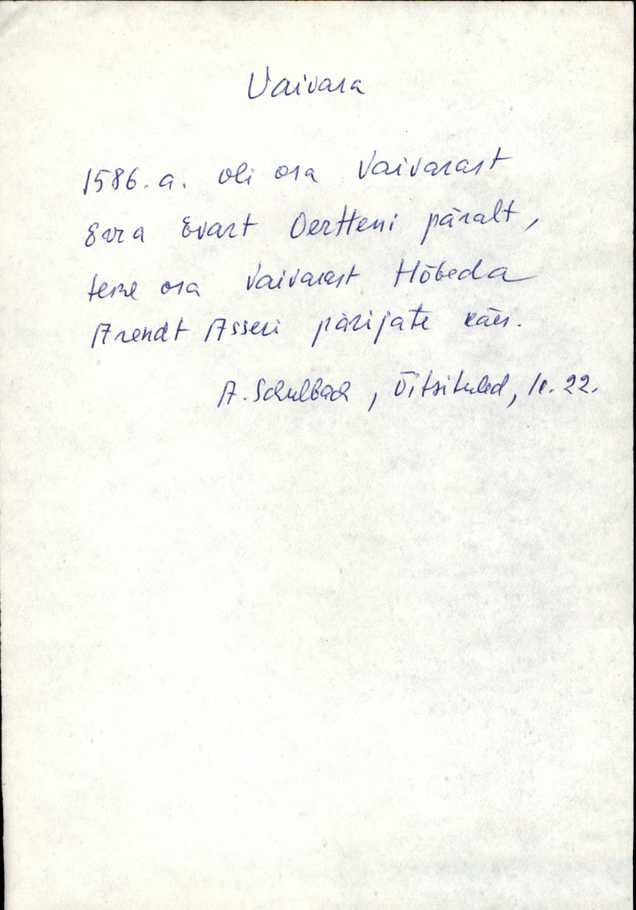 Vaivara
1586. a. oli osa Vaivarast
Erra Evart Oertteni päralt,
teine osa Vaivarast Hõbeda
Arendt Asseri pärijate käes.
A. Schulbach, Õitsituled, lk. 22.